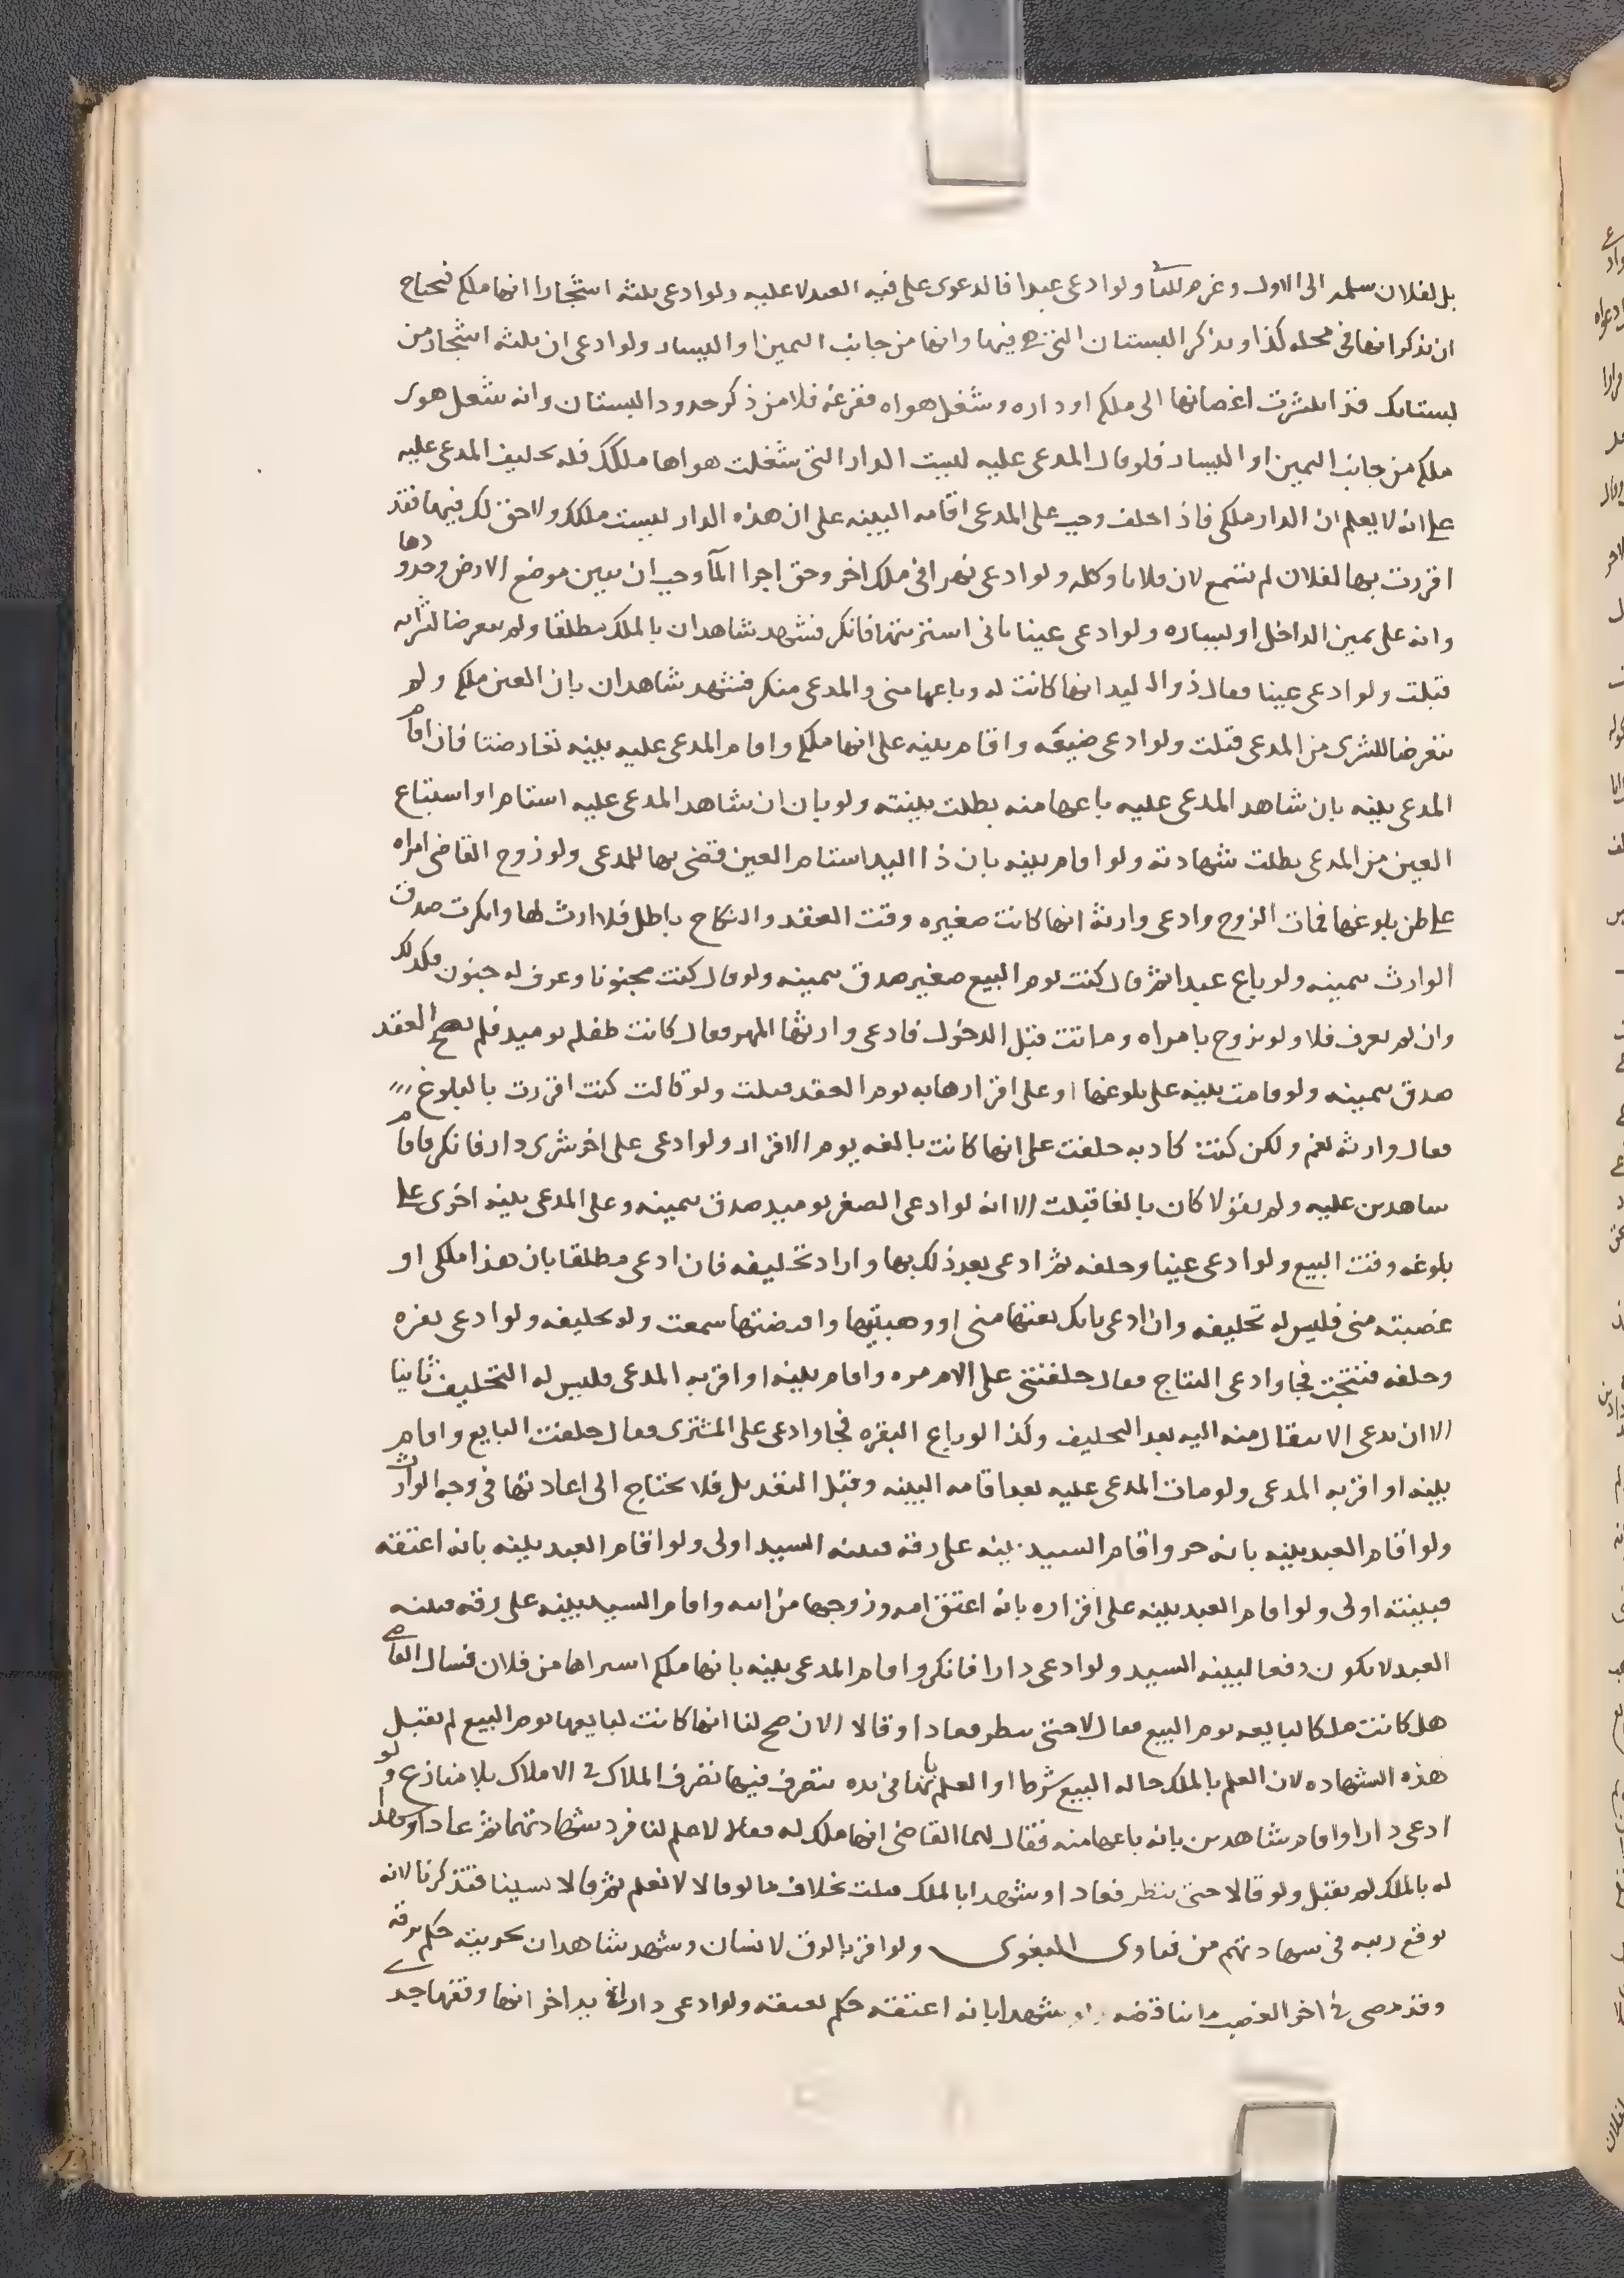 بل لفلان سلمه الى الاول وغرم للثاني ولو ادعى عبدا فالدعوى على فيه العبد لا عليه ولو ادعى ثلثه اشجارا انها ملكي فيحتاج
ان يذكر انها في محله كذا ويذكر البستان التي هي فيها وانها من جانب اليمين او اليسار ولو ادعى ان ثلثه اشجار من
بستانك قد انتشرت اغصانها الى ملكي او داره وشغل هواه ففرغه فلا من ذكر حدود البستان وانه شغل هوى
ملكي من جانب اليمين او اليسار فلو قال المدعى عليه ليست الدار التي شغلت هواها ملكك فله تحليف المدعى عليه
على انه لا يعلم ان الدار ملكي فاذا حلف وجب على المدعى اقامه البينه على ان هذه الدار ليست ملكك ولا حق لك فيها فقد
اقررت بها لفلان لم تسمع لان فلانا وكله ولو ادعى نهرا في ملك اخر وحق اجرا المآ وجب ان يبين موضع الارض وحدودها
وانه على يمين الداخل او يساره ولو ادعى عينا باني اشتريتها فانكر فشهد شاهدان بالملك مطلقا ولم يتعرضا لشرايه
قبلت ولو ادعى عينا فقال ذو اليد انها كانت له وباعها مني والمدعى منكر فشهد شاهدان بان العين ملكي ولم
يتعرضا للشرى من المدعى قبلت ولو ادعى ضيعه واقام بينه على انها ملكي واقام المدعى عليه بينه تعارضتا فان اقام
المدعى بينه بان شاهد المدعى عليه باعها منه بطلت بينته ولو بان ان شاهد المدعى عليه استام او استباع
العين من المدعى بطلت شهادته ولو اقام بينه بان ذا اليد استام العين قضى بها للمدعى ولو زوج القاضي امراه
على ظن بلوغها فمات الزوج وادعى وارثه انها كانت صغيره وقت العقد والنكاح باطل فلا ارث لها وانكرت صدق
الوارث بيمينه ولو باع عبدا ثم قال كنت يوم البيع صغير صدق بيمينه ولو قال كنت مجنونا وعرف له جنون فكذلك
وان لم يعرف فلا ولو تزوج بامراه وماتت قبل الدخول فادعى وارثها المهر فقال كانت طفله يوميد فلم يصح العقد
صدق بيمينه ولو قامت بينه على بلوغها او على اقرارها به يوم العقد قبلت ولو قالت كنت اقررت بالبلوغ
فقال وارثه نعم ولكن كنت كاذبه حلفت على انها كانت بالغه يوم الاقرار ولو ادعى على اخر شرى دار فانكر فاقام
شاهدين عليه ولم يقولا كان بالغا قبلت الا انه لو ادعى الصغر يوميد صدق بيمينه وعلى المدعى بينه اخرى على
بلوغه وقت البيع ولو ادعى عينا وحلفه ثم ادعى بعد ذلك بها واراد تحليفه فان ادعى مطلقا بان هذا ملكي او
غصبته مني فليس له تحليفه وان ادعى بانك بعتها مني او وهبتها واقبضتها سمعت وله تحليفه ولو ادعى بقره
وحلفه فنتجت فجا وادعى النتاج فقال حلفتني على الام مره واقام بينه او اقر به المدعى فليس له التحليف ثانيا
الا ان يدعى الانتقال منه اليه بعد التحليف وكذا لو باع البقره فجا وادعى على المشترى فقال حلفت البايع واقام
بينه او اقر به المدعى ولو مات المدعى عليه بعد اقامه البينه وقبل التعديل فلا يحتاج الى اعادتها في وجه الوارث
ولو اقام العبد بينه بانه حر واقام السيد بينه على رقه فبينه السيد اولى ولو اقام العبد بينه بانه اعتقه
فبينته اولى ولو اقام العبد بينه على اقراره بانه اعتق امه وزوجها من ابيه واقام السيد بينه على رقه فبينه
العبد لا تكون دفعا لبينه السيد ولو ادعى دارا فانكر واقام المدعى بينه بانها ملكي اشتراها من فلان فسال القاضي
هل كانت ملكا لبايعه يوم البيع فقال لا حتى ينظر فعادا وقالا الان صح لنا انها كانت لبايعها يوم البيع لم تقبل
هذه الشهاده لان العلم بالملك حاله البيع شرط او العلم بانها في يده يتصرف فيها تصرف الملاك في الاملاك بلا منازع ولو
ادعى دارا واقام شاهدين بانه باعها منه فقال لهما القاضي انها ملك له فقالا لا علم لنا فرد شهادتهما ثم عادا وشهدا
له بالملك لم تقبل ولو قالا حتى ننظر فعادا وشهدا بالملك قبلت بخلاف ما لو قالا لا نعلم ثم قالا نسينا فتذكرنا لانه
يوقع ريبه في شهادتهم من فتاوى البغوى ولو اقر بالرق لانسان وشهد شاهدان بحريته حكم برقه
وقد مضى في اخر الغصب ما يناقضه ولو شهدا بانه اعتقه حكم بعتقه ولو ادعى دارا في يد اخر انها وقفها جد